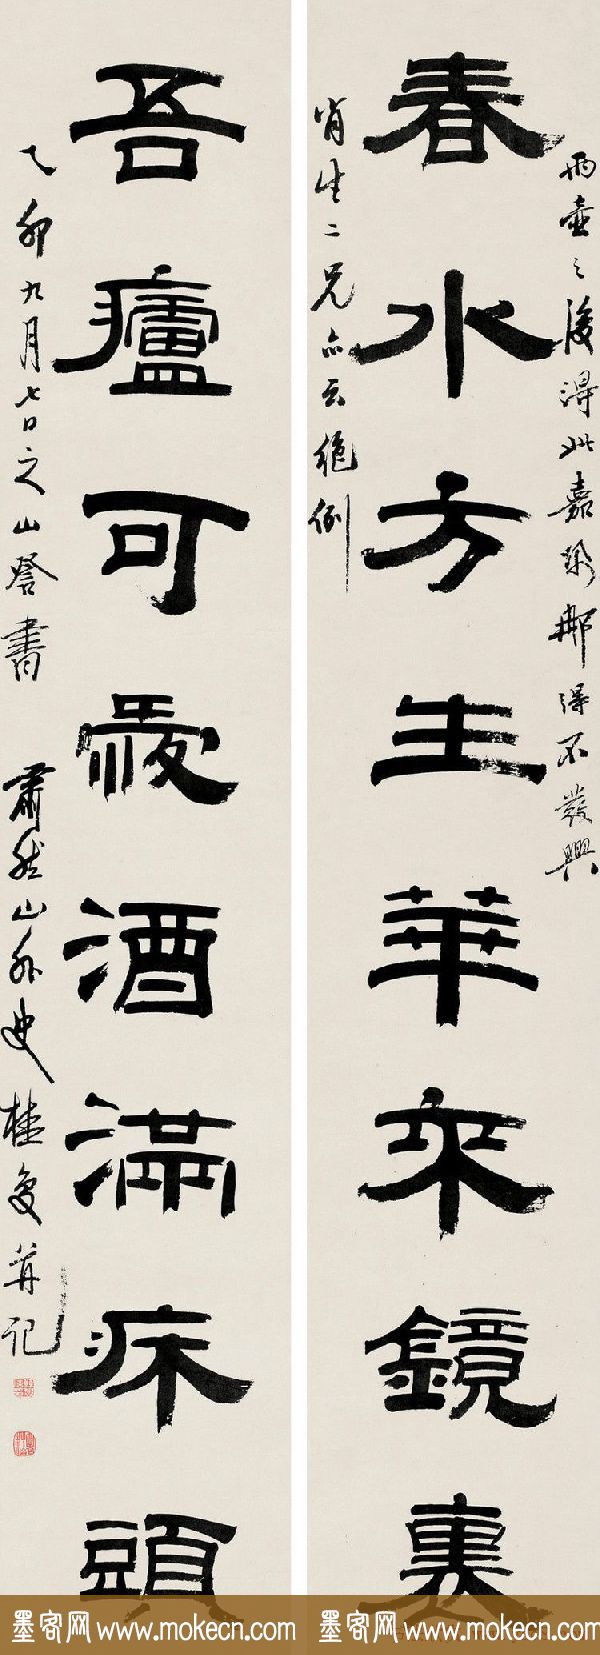 兩壺之後得此嘉聯那得不發興
春水方生華來鏡裏
肯生二兄亦云絕倒
吾廬可愛酒滿床頭
乙卯九月七日之山書 肅然山外史桂馥并記
墨客网 www.mokecn.com 墨客网 www.mokecn.com